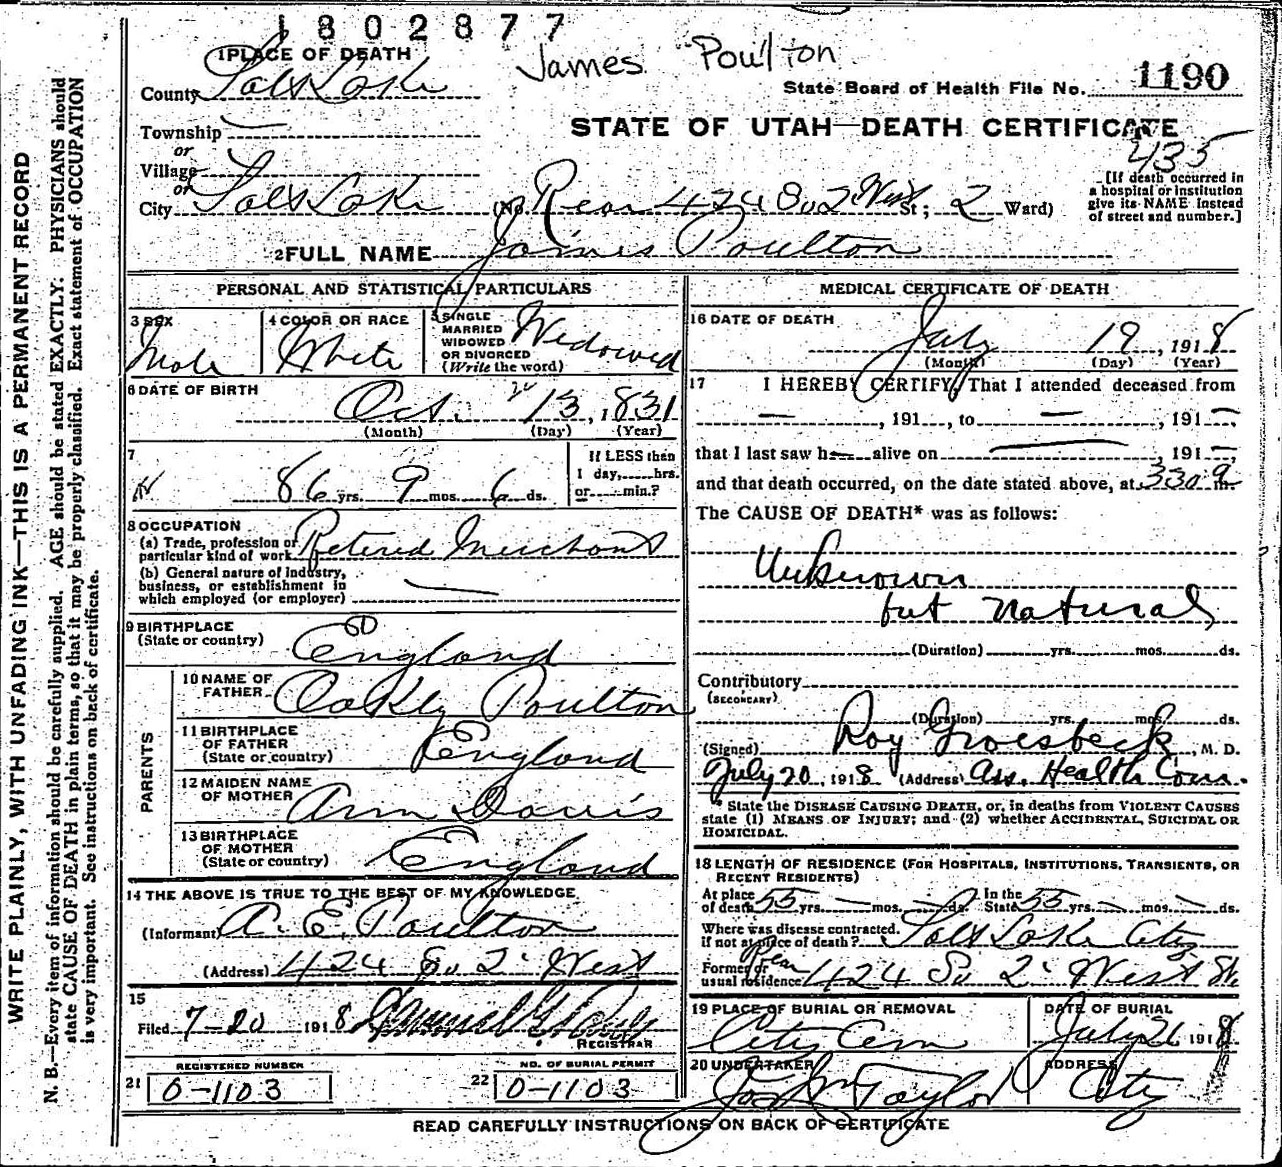 1802877
James Poulton
1 PLACE OF DEATH
County Salt Lake
State Board of Health File No. 1190
Township —
or
STATE OF UTAH—DEATH CERTIFICATE
435
Village
or
City Salt Lake (No. Rear 424 So 2 West St; 2 Ward)
[If death occurred in
a hospital or institution
give its NAME instead
of street and number.]
2 FULL NAME James Poulton
PERSONAL AND STATISTICAL PARTICULARS
3 SEX
Male
4 COLOR OR RACE
White
5 SINGLE
MARRIED
WIDOWED
OR DIVORCED
(Write the word)
Widowed
6 DATE OF BIRTH
Oct. 13, 1831
(Month) (Day) (Year)
7
86 yrs. 9 mos. 6 ds.
If LESS than
1 day,......hrs.
or......min.?
8 OCCUPATION
(a) Trade, profession or
particular kind of work Retired Merchant
(b) General nature of industry,
business, or establishment in
which employed (or employer) —
9 BIRTHPLACE
(State or country)
England
PARENTS
10 NAME OF
FATHER Oakly Poulton
11 BIRTHPLACE
OF FATHER
(State or country) England
12 MAIDEN NAME
OF MOTHER Ann Davis
13 BIRTHPLACE
OF MOTHER
(State or country) England
14 THE ABOVE IS TRUE TO THE BEST OF MY KNOWLEDGE
(Informant) A. E. Poulton
(Address) 424 So 2' West
15
Filed 7-20 1918
REGISTRAR
REGISTERED NUMBER
21 0-1103
NO. OF BURIAL PERMIT
22 0-1103
MEDICAL CERTIFICATE OF DEATH
16 DATE OF DEATH
July 19, 1918
(Month) (Day) (Year)
17 I HEREBY CERTIFY, That I attended deceased from
—, 191...., to —, 191—,
that I last saw h— alive on —, 191—,
and that death occurred, on the date stated above, at 330 m.
The CAUSE OF DEATH* was as follows:
Unknown
but natural
(Duration) yrs. mos. ds.
Contributory
(SECONDARY)
(Duration) yrs. mos. ds.
(Signed) Roy Groesbeck, M. D.
July 20, 1918 (Address) Ass. Health Com.
*State the DISEASE CAUSING DEATH, or, in deaths from VIOLENT CAUSES
state (1) MEANS OF INJURY; and (2) whether ACCIDENTAL, SUICIDAL OR
HOMICIDAL.
18 LENGTH OF RESIDENCE (FOR HOSPITALS, INSTITUTIONS, TRANSIENTS, OR
RECENT RESIDENTS)
At place
of death 55 yrs. — mos. — ds. In the
State 55 yrs. — mos. — ds.
Where was disease contracted.
if not at place of death? Salt Lake City
Former or
usual residence Rear 424 So 2' West St.
19 PLACE OF BURIAL OR REMOVAL
City Cem
DATE OF BURIAL
July 21 1918
20 UNDERTAKER
Jos Wm Taylor
ADDRESS
City
READ CAREFULLY INSTRUCTIONS ON BACK OF CERTIFICATE
WRITE PLAINLY, WITH UNFADING INK—THIS IS A PERMANENT RECORD
N. B.—Every item of information should be carefully supplied. AGE should be stated EXACTLY: PHYSICIANS should
state CAUSE OF DEATH in plain terms, so that it may be properly classified. Exact statement of OCCUPATION
is very important. See instructions on back of certificate.